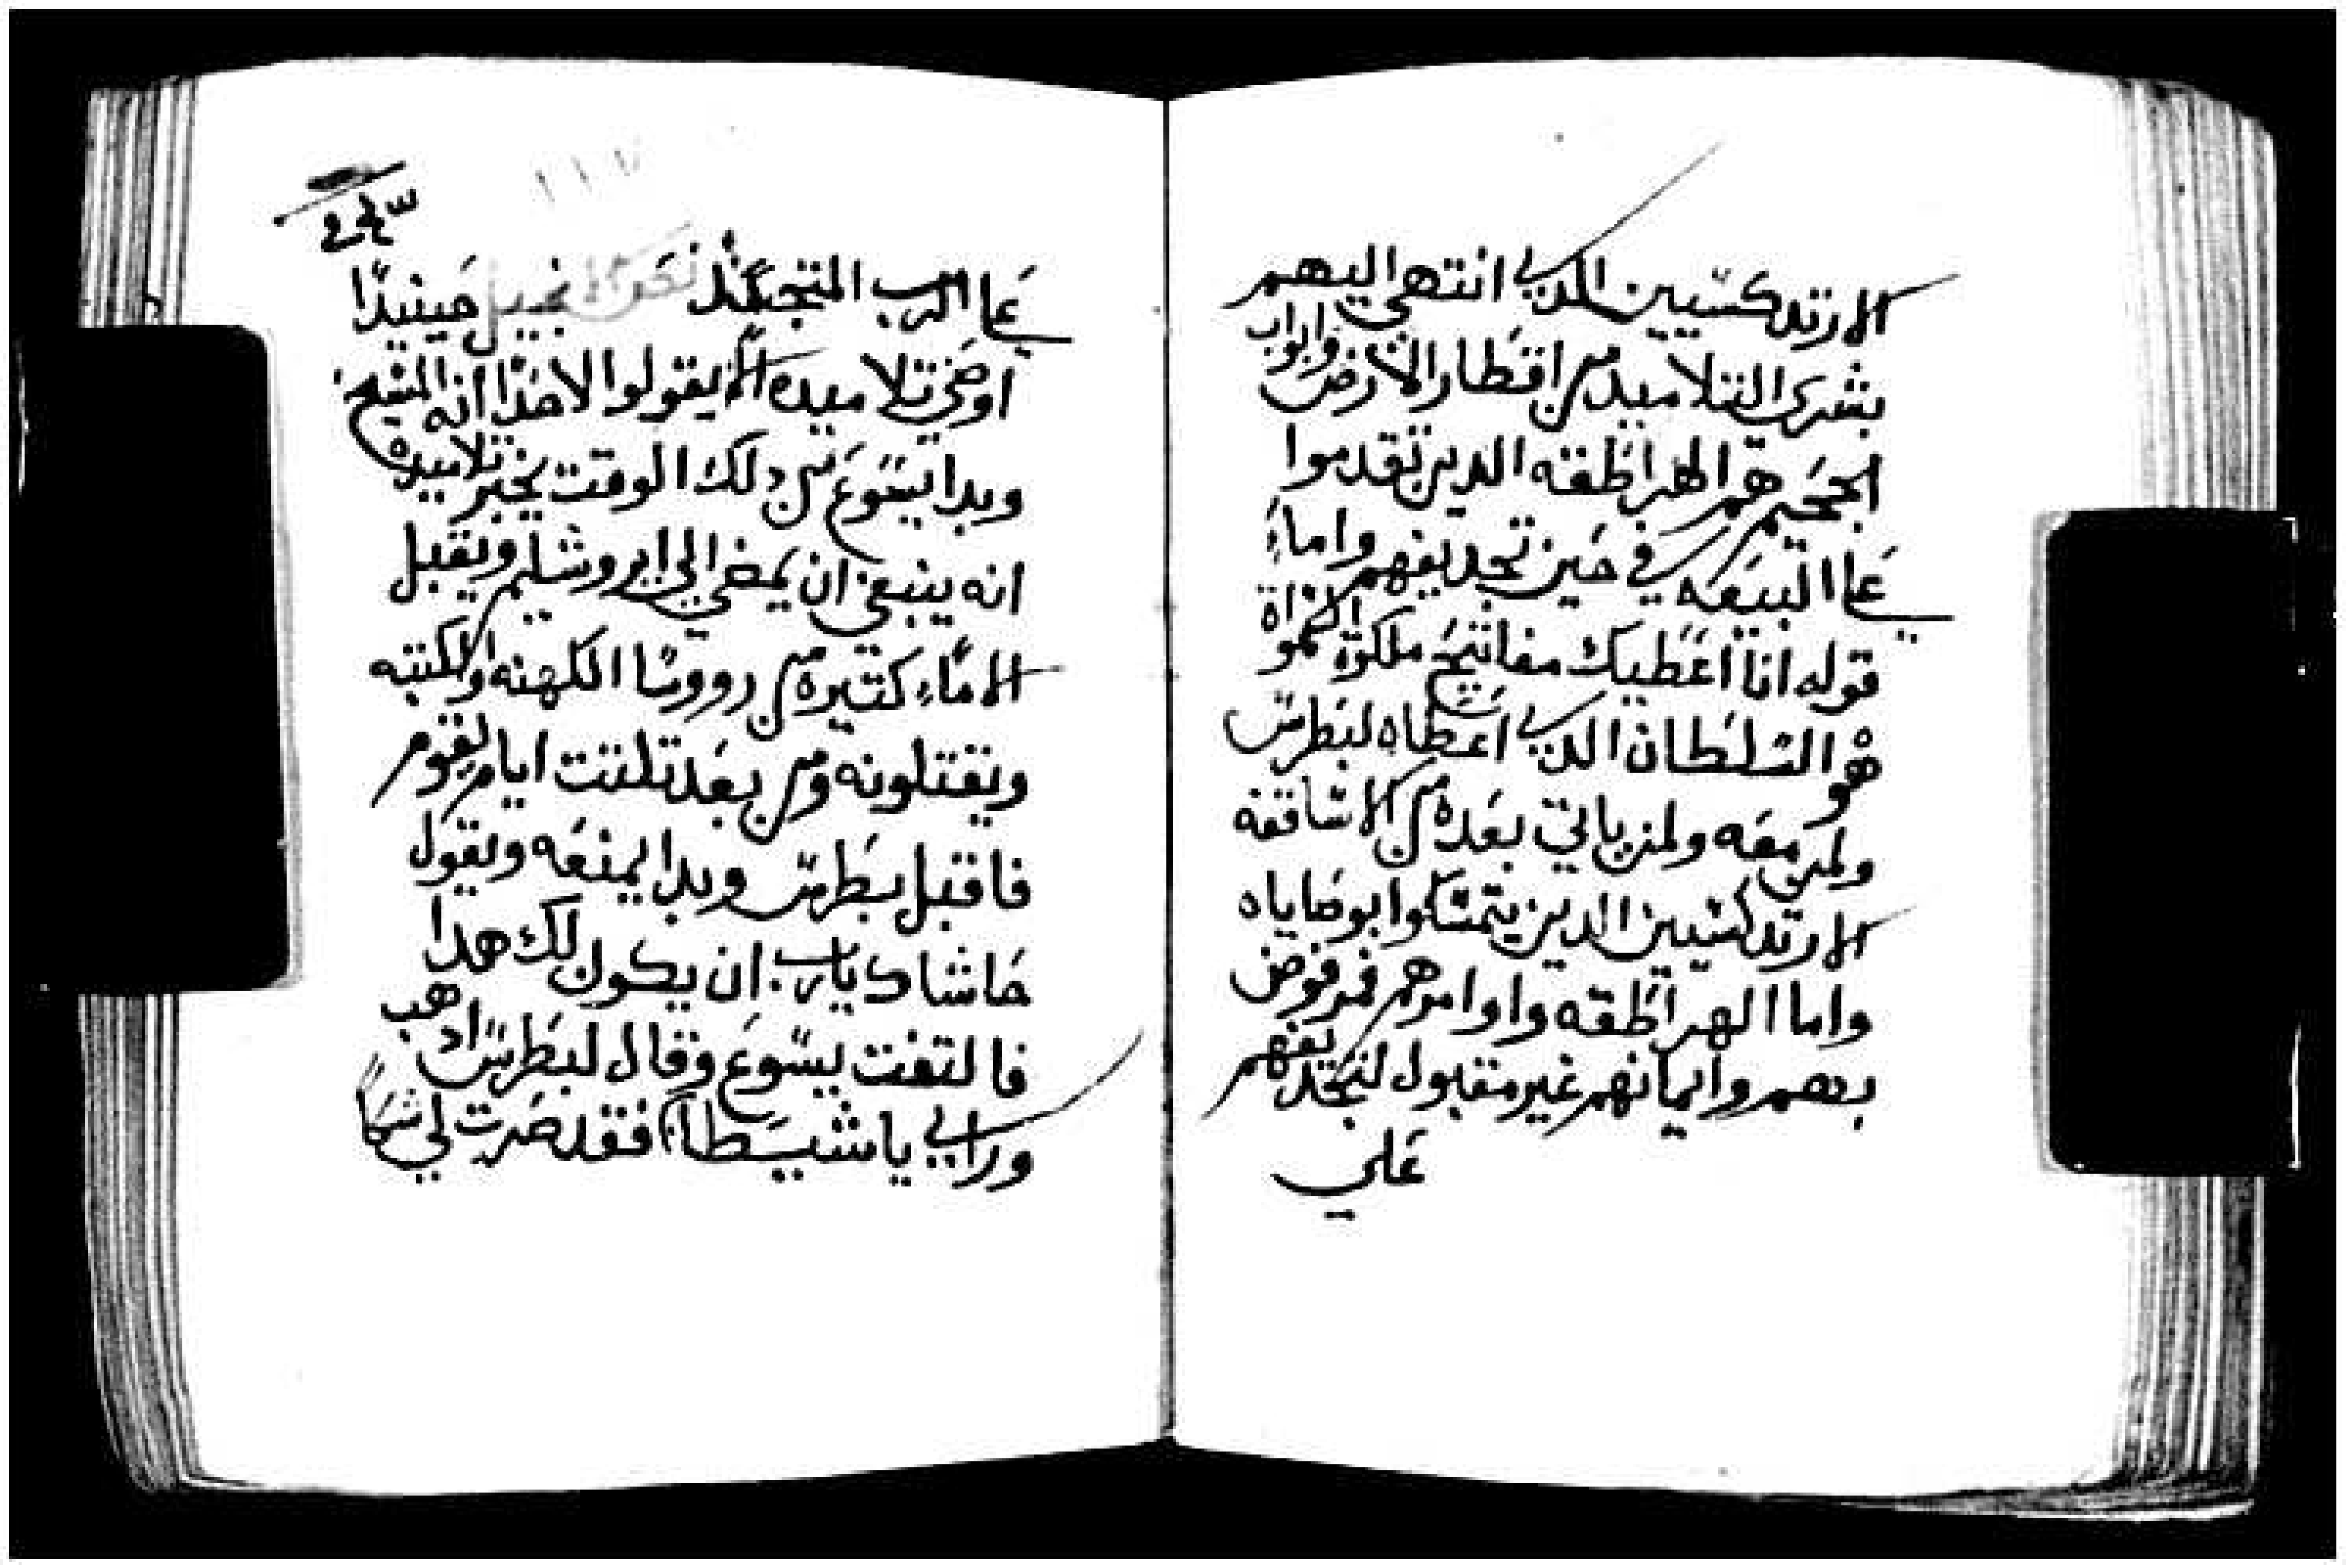 الارتدكسيين الذي انتهي اليهم
بشري التلاميد من اقطار الارض وابواب
الجحيم هم الهراطقه الدين تقدموا
علي البيعه في حين تجديفهم واما
قوله انا اعطيك مفاتيح ملكوة السموات
هو السلطان الدي اعطاه لبطرس
ولمن معه ولمن ياتي بعده من الاساقفه
الارتدكسيين الدين يتمسكوا بوصاياه
واما الهراطقه واوامرهم فمرفوض
بهم وايمانهم غير مقبول لتجديفهم
علي
علي الرب المتجسد نص الانجيل حينيدا
اوصي تلاميده الا يقولوا لاحدا انه المسيح
وبدا يسوع من دلك الوقت يخبر تلاميده
انه ينبغي ان يمضي الي ايروشليم ويقبل
الاماء كتيره من رووسا الكهنه والكتبه
ويقتلونه ومن بعد تلتت ايام يقوم
فاقبل بطرس وبدا يمنعه ويقول
حاشاك يارب ان يكون لك هدا
فالتفت يسوع وقال لبطرس ادهب
وراي ياشيطان فقد صرت لي شكا